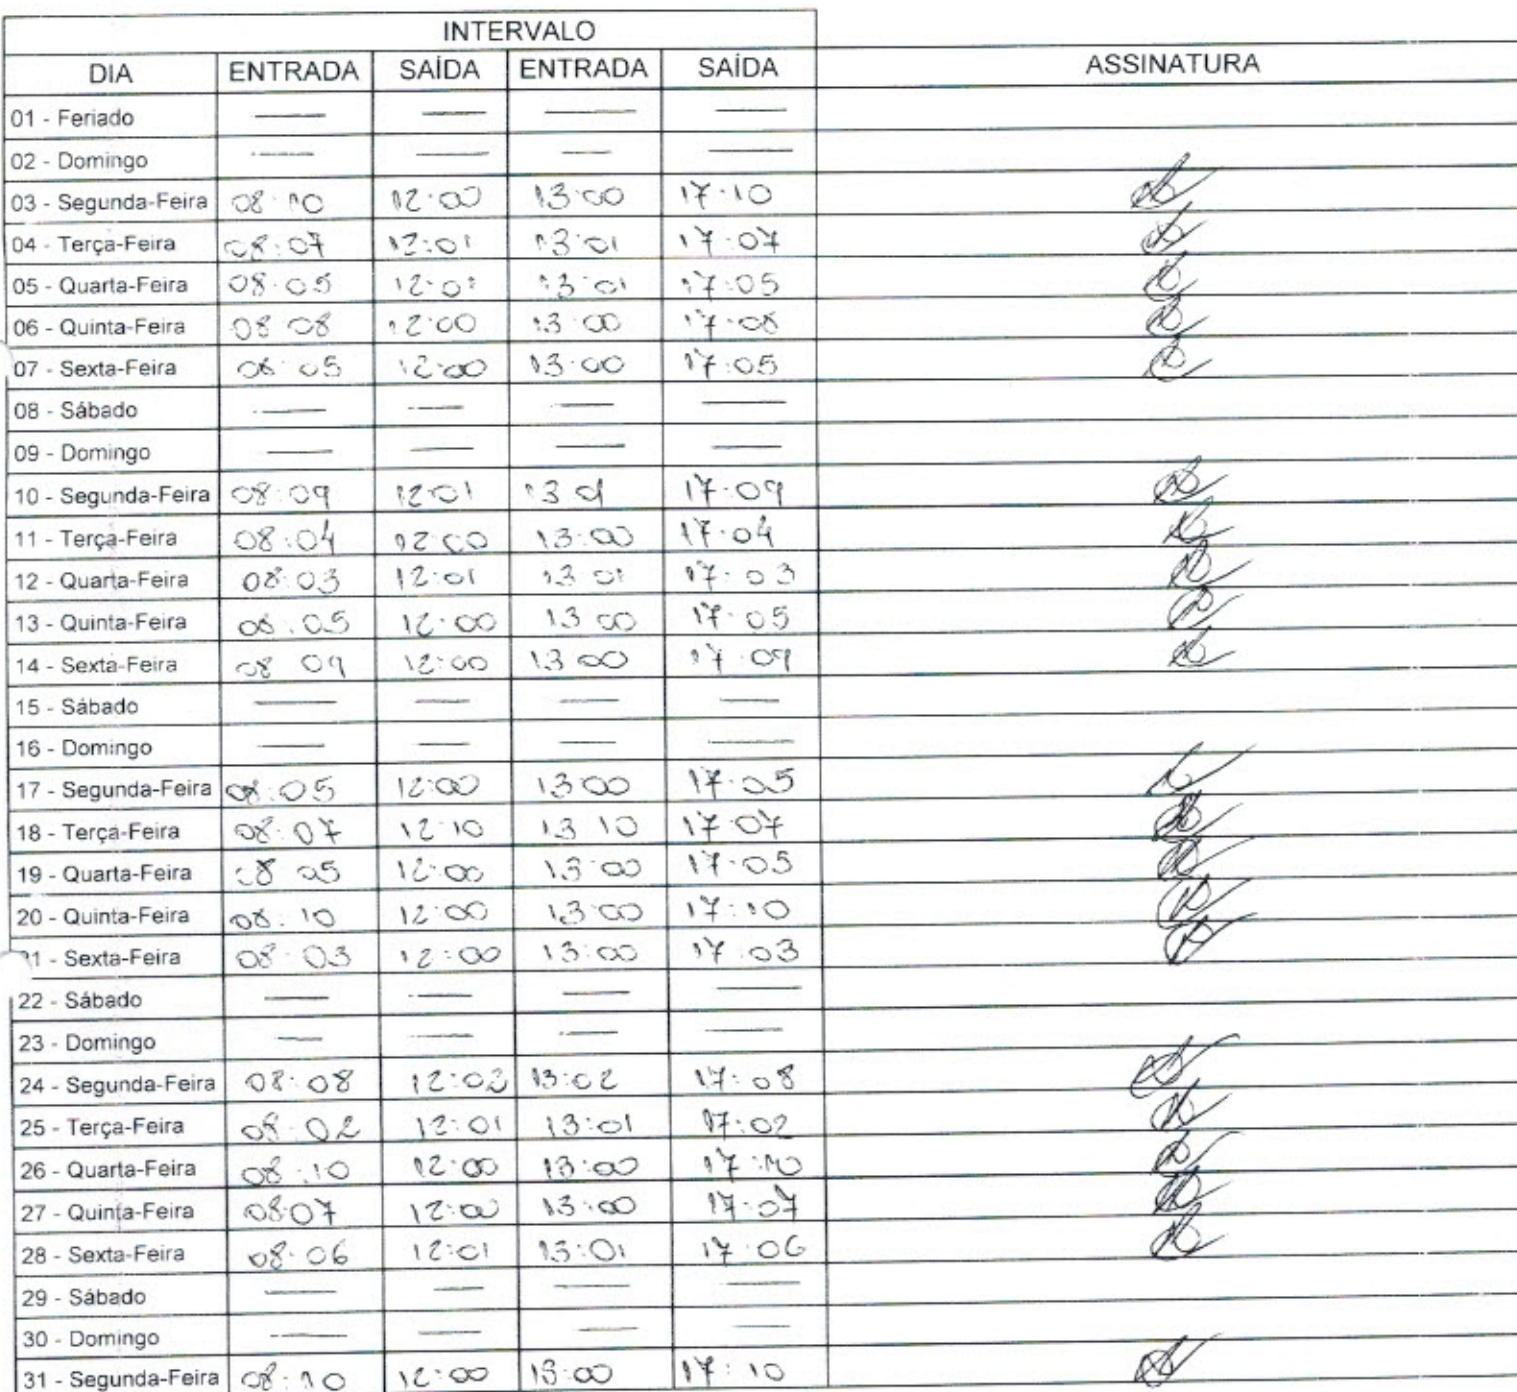 INTERVALO
DIA ENTRADA SAÍDA ENTRADA SAÍDA ASSINATURA
01 - Feriado — — — —
02 - Domingo — — — —
03 - Segunda-Feira 08:10 12:00 13:00 17:10
04 - Terça-Feira 08:07 12:01 13:01 17:07
05 - Quarta-Feira 08:05 12:01 13:01 17:05
06 - Quinta-Feira 08:08 12:00 13:00 17:08
07 - Sexta-Feira 08:05 12:00 13:00 17:05
08 - Sábado — — — —
09 - Domingo — — — —
10 - Segunda-Feira 08:09 12:01 13:01 17:09
11 - Terça-Feira 08:04 12:00 13:00 17:04
12 - Quarta-Feira 08:03 12:01 13:01 17:03
13 - Quinta-Feira 08:05 12:00 13:00 17:05
14 - Sexta-Feira 08:09 12:00 13:00 17:09
15 - Sábado — — — —
16 - Domingo — — — —
17 - Segunda-Feira 08:05 12:00 13:00 17:05
18 - Terça-Feira 08:07 12:10 13:10 17:07
19 - Quarta-Feira 08:05 12:00 13:00 17:05
20 - Quinta-Feira 08:10 12:00 13:00 17:10
21 - Sexta-Feira 08:03 12:00 13:00 17:03
22 - Sábado — — — —
23 - Domingo — — — —
24 - Segunda-Feira 08:08 12:02 13:02 17:08
25 - Terça-Feira 08:02 12:01 13:01 17:02
26 - Quarta-Feira 08:10 12:00 13:00 17:10
27 - Quinta-Feira 08:07 12:00 13:00 17:07
28 - Sexta-Feira 08:06 12:01 13:01 17:06
29 - Sábado — — — —
30 - Domingo — — — —
31 - Segunda-Feira 08:10 12:00 13:00 17:10